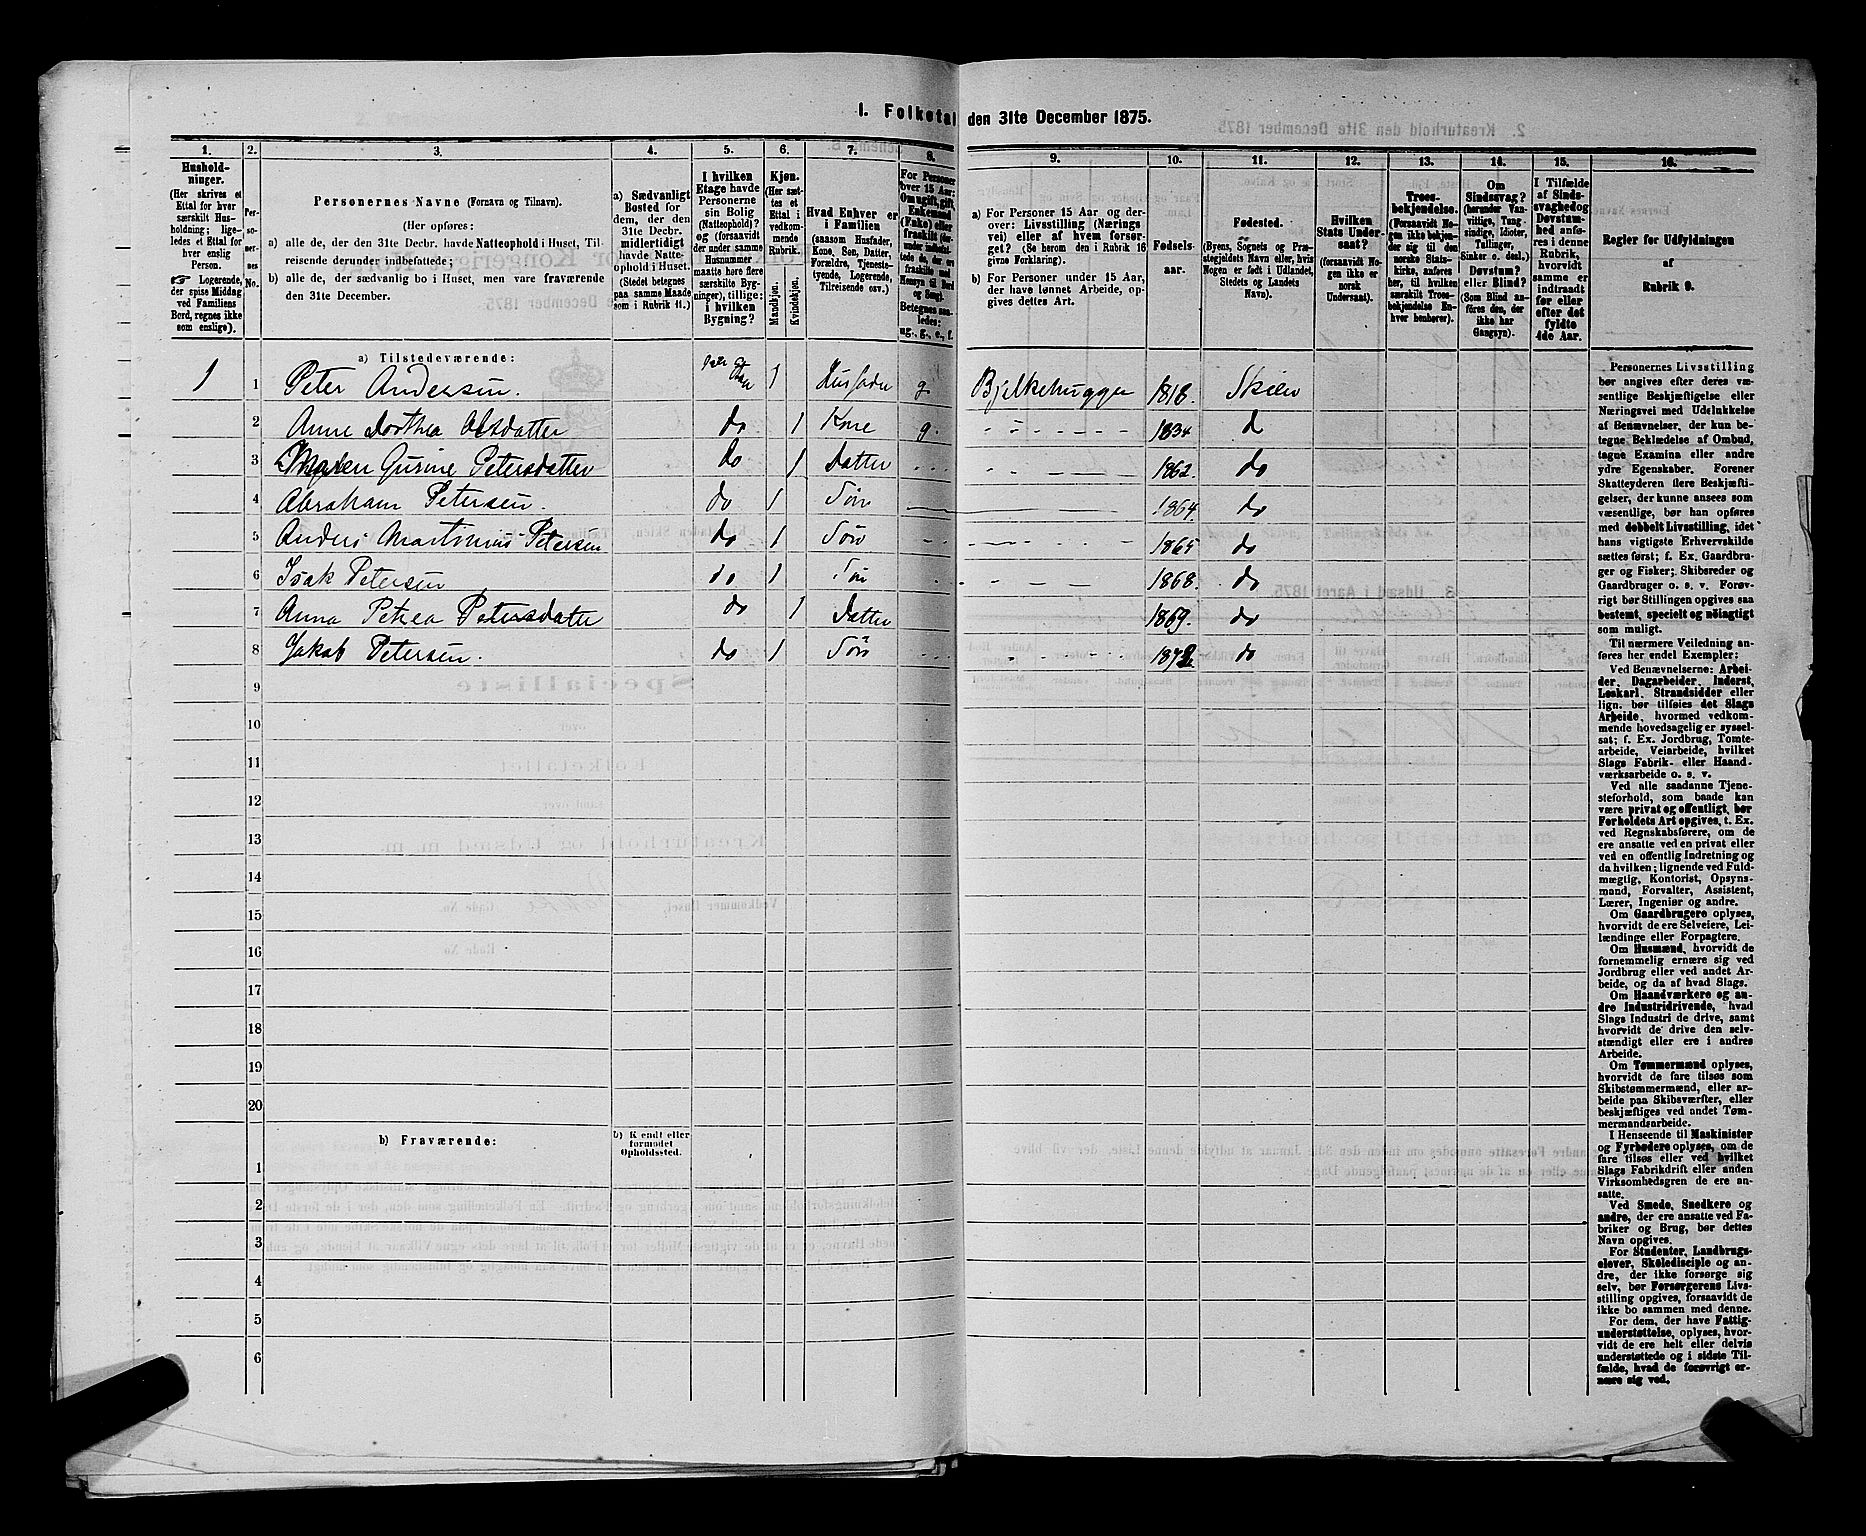 1. Folketal den 31te December 1875.
1. 2. 3. 4. 5. 6. 7. 8. 9. 10. 11. 12. 13. 14. 15. 16.
Hushold-
ninger.
(Her skrives et
Ettal for hver
særskilt Hus-
holdning; lige-
ledes et Ettal for
hver enslig
Person.
☞ Logerende,
der spise Middag
ved Familiens
Bord, regnes ikke
som enslige).
Per-
so-
ner-
nes
No.
Personernes Navne (Fornavn og Tilnavn).
(Her opføres:
a) alle de, der den 31te Decbr. havde Natteophold i Huset, Til-
reisende derunder indbefattede;
b) alle de, der sædvanlig bo i Huset, men vare fraværende
den 31te December.
a) Sædvanligt
Bosted for
dem, der den
31te Decbr.
midlertidigt
havde Natte-
ophold i Huset.
(Stedet betegnes
paa samme Maade
som i Rubrik 11.)
I hvilken
Etage havde
Personerne
sin Bolig
(Natteophold)?
og (forsaavidt
der under samme
Husnummer
maatte høre flere
særskilte Byg-
ninger), tillige:
i hvilken
Bygning?
Kjøn.
(Her sæt-
tes et
Ettal i
vedkom-
mende
Rubrik.)
Mandkjøn.
Kvindekjøn.
Hvad Enhver er
i Familien
(saasom Husfader,
Kone, Søn, Datter,
Forældre, Tjeneste-
tyende, Logerende,
Tilreisende osv.)
For Personer
over 15 Aar:
Om ugift, gift,
Enkemand
(Enke) eller
fraskilt
a) For Personer 15 Aar og der-
over: Livsstilling (Nærings
vei) eller af hvem forsør-
get? (Se herom den i Rubrik 16
givne Forklaring).
b) For Personer under 15 Aar,
der have lønnet Arbeide, op-
gives dettes Art.
Fødsels-
aar.
Fødested.
(Byens, Sognets og Præ-
stegjeldets Navn eller, hvis
Nogen er født i Udlandet,
Stedets og Landets
Navn).
Hvilken
Stats Under-
saat?
(forsaavidt No-
gen ikke er
norsk
Undersaat).
Troes-
bekjendelse.
(Forsaavidt No-
gen ikke bekjen-
der sig til den
norske Stats-
kirke, anføres
her, til hvilken
særskilt Troes-
bekjendelse En-
hver henhører).
Om
Sindssvag?
(herunder Van-
vittige, Tung-
sindige, Idioter,
Tullinger,
Sinker o. desl.)
Døvstum?
eller Blind?
(Som Blind an-
føres den, der
ikke har
Gangsyn).
I Tilfælde
af Sinds-
svaghed og
Døvstum-
hed anfø-
res i denne
Rubrik,
hvorvidt
samme er
indtraadt
før eller
efter det
fyldte
4de Aar.
Regler for Udfyldningen
af
Rubrik 9.
a) Tilstedeværende:
1 1 Peter Andersen. 1 Husfader g. Bjelkehugger 1818. Skien
2 Anne Dorthea Olsdatter do 1 Kone g. 1834 do
3 Maren Gurine Petersdatter do 1 Datter 1862. do
4 Abraham Petersen. do 1 Søn 1864. do
5 Anders Martinius Petersen do 1 Søn 1865 do
6 Isak Petersen do 1 Søn 1868. do
7 Anna Petrea Petersdatter do 1 Datter 1869. do
8 Jakob Petersen. do 1 Søn 1872 do
9
10
11
12
13
14
15
16
17
18
19
20
b) Fraværende:
b) Kendt eller
formodet
Opholdssted.
1
2
3
4
5
6
Personernes Livsstilling
bør angives efter deres væ-
sentlige Beskjæftigelse eller
Næringsvei med Udelukkelse
af Benævnelser, der kun be-
tegne Beklædelse af Ombud,
tagne Examina eller andre
ydre Egenskaber. Forener
Skatteyderen flere Beskjæfti-
gelser, der kunne ansees som
væsentlige, bør han opføres
med dobbelt Livsstilling, idet
hans vigtigste Erhvervskilde
sættes først; f. Ex. Gaardbru-
ger og Fisker; Skibsreder og
Gaardbruger o. s. v. Forøv-
rigt bør Stillingen opgives saa
bestemt, specielt og nöiagtigt
som muligt.
Til nærmere Veiledning an-
føres her endel Exempler:
Ved Benævnelserne: Arbei-
der, Dagarbeider, Inderst,
Løskarl, Strandsidder eller
lign. bør tilføies det Slags
Arbeide, hvormed vedkom-
mende hovedsagelig er syssel-
sat; f. Ex. Jordbrug, Tomte-
arbeide, Veiarbeide, hvilket
Slags Fabrik- eller Haand-
værksarbeide o. s. v.
Ved alle saadanne Tjene-
steforhold, som baade kan
være privat og offentligt, bør
Forholdets Art opgives, t. Ex.
ved Regnskabsførere, om de
ere ansatte ved en privat eller
ved en offentlig Indretning og
da hvilken; lignende ved Fuld-
mægtig, Kontorist, Opsyns-
mand, Forvalter, Assistent,
Lærer, Ingeniør og andre.
Om Gaardbrugere oplyses,
hvorvidt de ere Selveiere, Lei-
lændinge eller Forpagtere.
Om Husmænd, hvorvidt de
fornemmelig ernære sig ved
Jordbrug eller ved andet Ar-
beide, og da af hvad Slags.
Om Haandværkere og an-
dre Industridrivende, hvad
Slags Industri de drive, samt
hvorvidt de drive den selv-
stændigt eller ere i andres
Arbeide.
Om Tømmermænd oplyses,
hvorvidt de fare tilsøs som
Skibstømmermænd, eller ar-
beide paa Skibsværfter, eller
beskjæftiges ved andet Tøm-
mermandsarbeide.
I Henseende til Maskinister
og Fyrbødere oplyses, om de
fare tilsøs eller ved hvilket
Slags Fabrikdrift eller anden
Virksomhedsgren de ere an-
satte.
Ved Smede, Snedkere og
andre, der ere ansatte ved Fa-
briker og Brug, bør dettes
Navn opgives.
For Studenter, Landbrugs-
elever, Skoledisciple og an-
dre, der ikke forsørge sig
selv, bør Forsørgerens Livs-
stilling opgives, forsaavidt de
ikke bo sammen med denne.
For dem, der have Fattig-
understøttelse, oplyses, hvor-
vidt de ere helt eller delvis
understøttede og i sidste Til-
fælde, hvad de forøvrigt er-
nære sig ved.